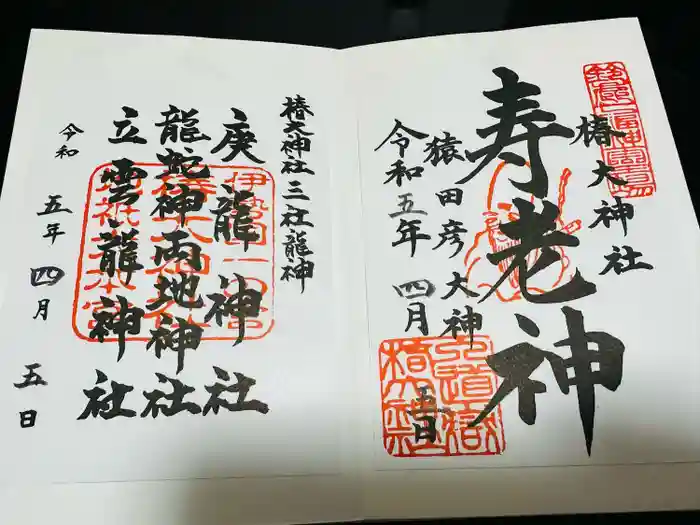 椿大神社
寿老神
猿田彦大神
令和五年四月五日
椿大神社三社龍神
庚龍神社
龍蛇神両地神社
立雲龍神社
令和五年四月五日